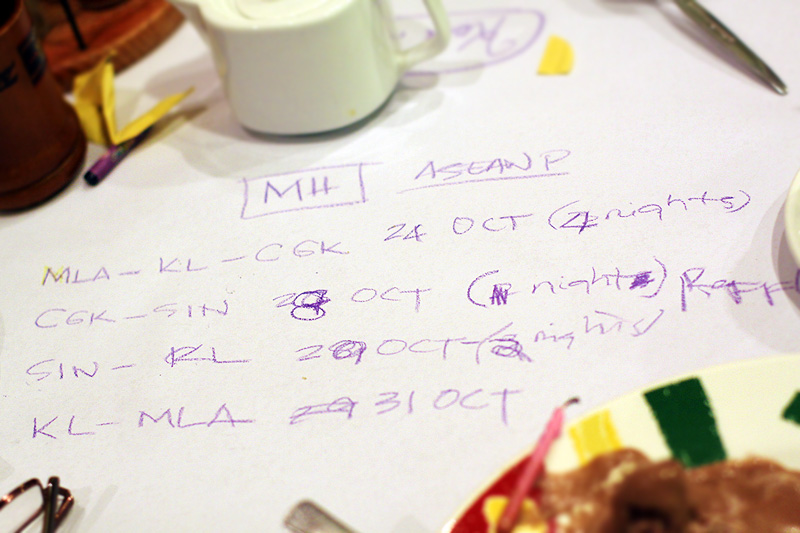 MH ASEAN P
MLA - KL - CGK 24 OCT (4 nights)
CGK - SIN 28 OCT ( night) Raffl
SIN - KL 29 OCT - ( nights)
KL - MLA 31 OCT